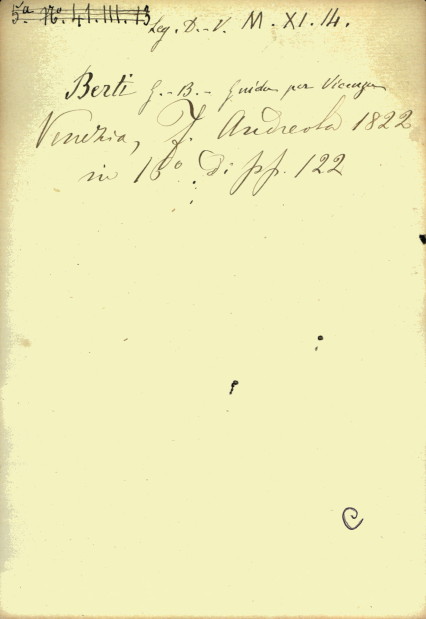 5.ª Nº. 41.III.13 Leg. D.-V. M.XI.14.
Berti G.-B.- Guida per Vicenza
Venezia, F. Andreola 1822
in 16º di pp. 122
C